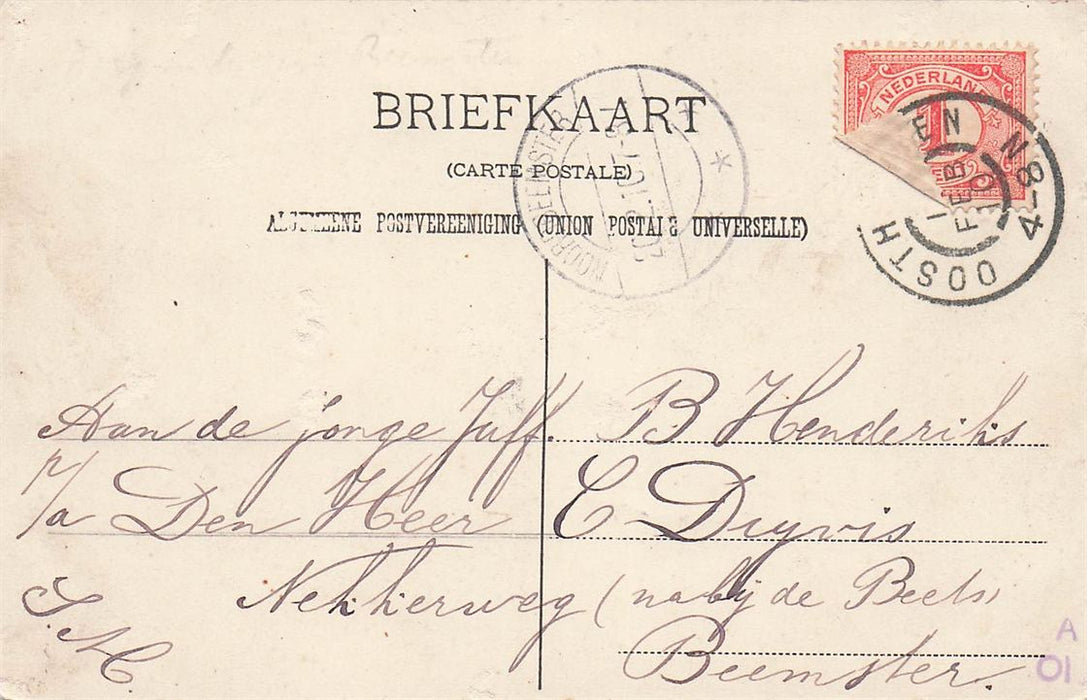 Beemster
BRIEFKAART
(CARTE POSTALE)
ALGEMEENE POSTVEREENIGING (UNION POSTALE UNIVERSELLE)
NOORDBEEMSTER
NEDERLAND
1
OOSTH EN
1 FEB
4-8 N
Aan de jonge Juff. B Henderiks
p/a Den Heer C Duyvis
Nekkerweg (nabij de Beets)
Beemster.
A
01